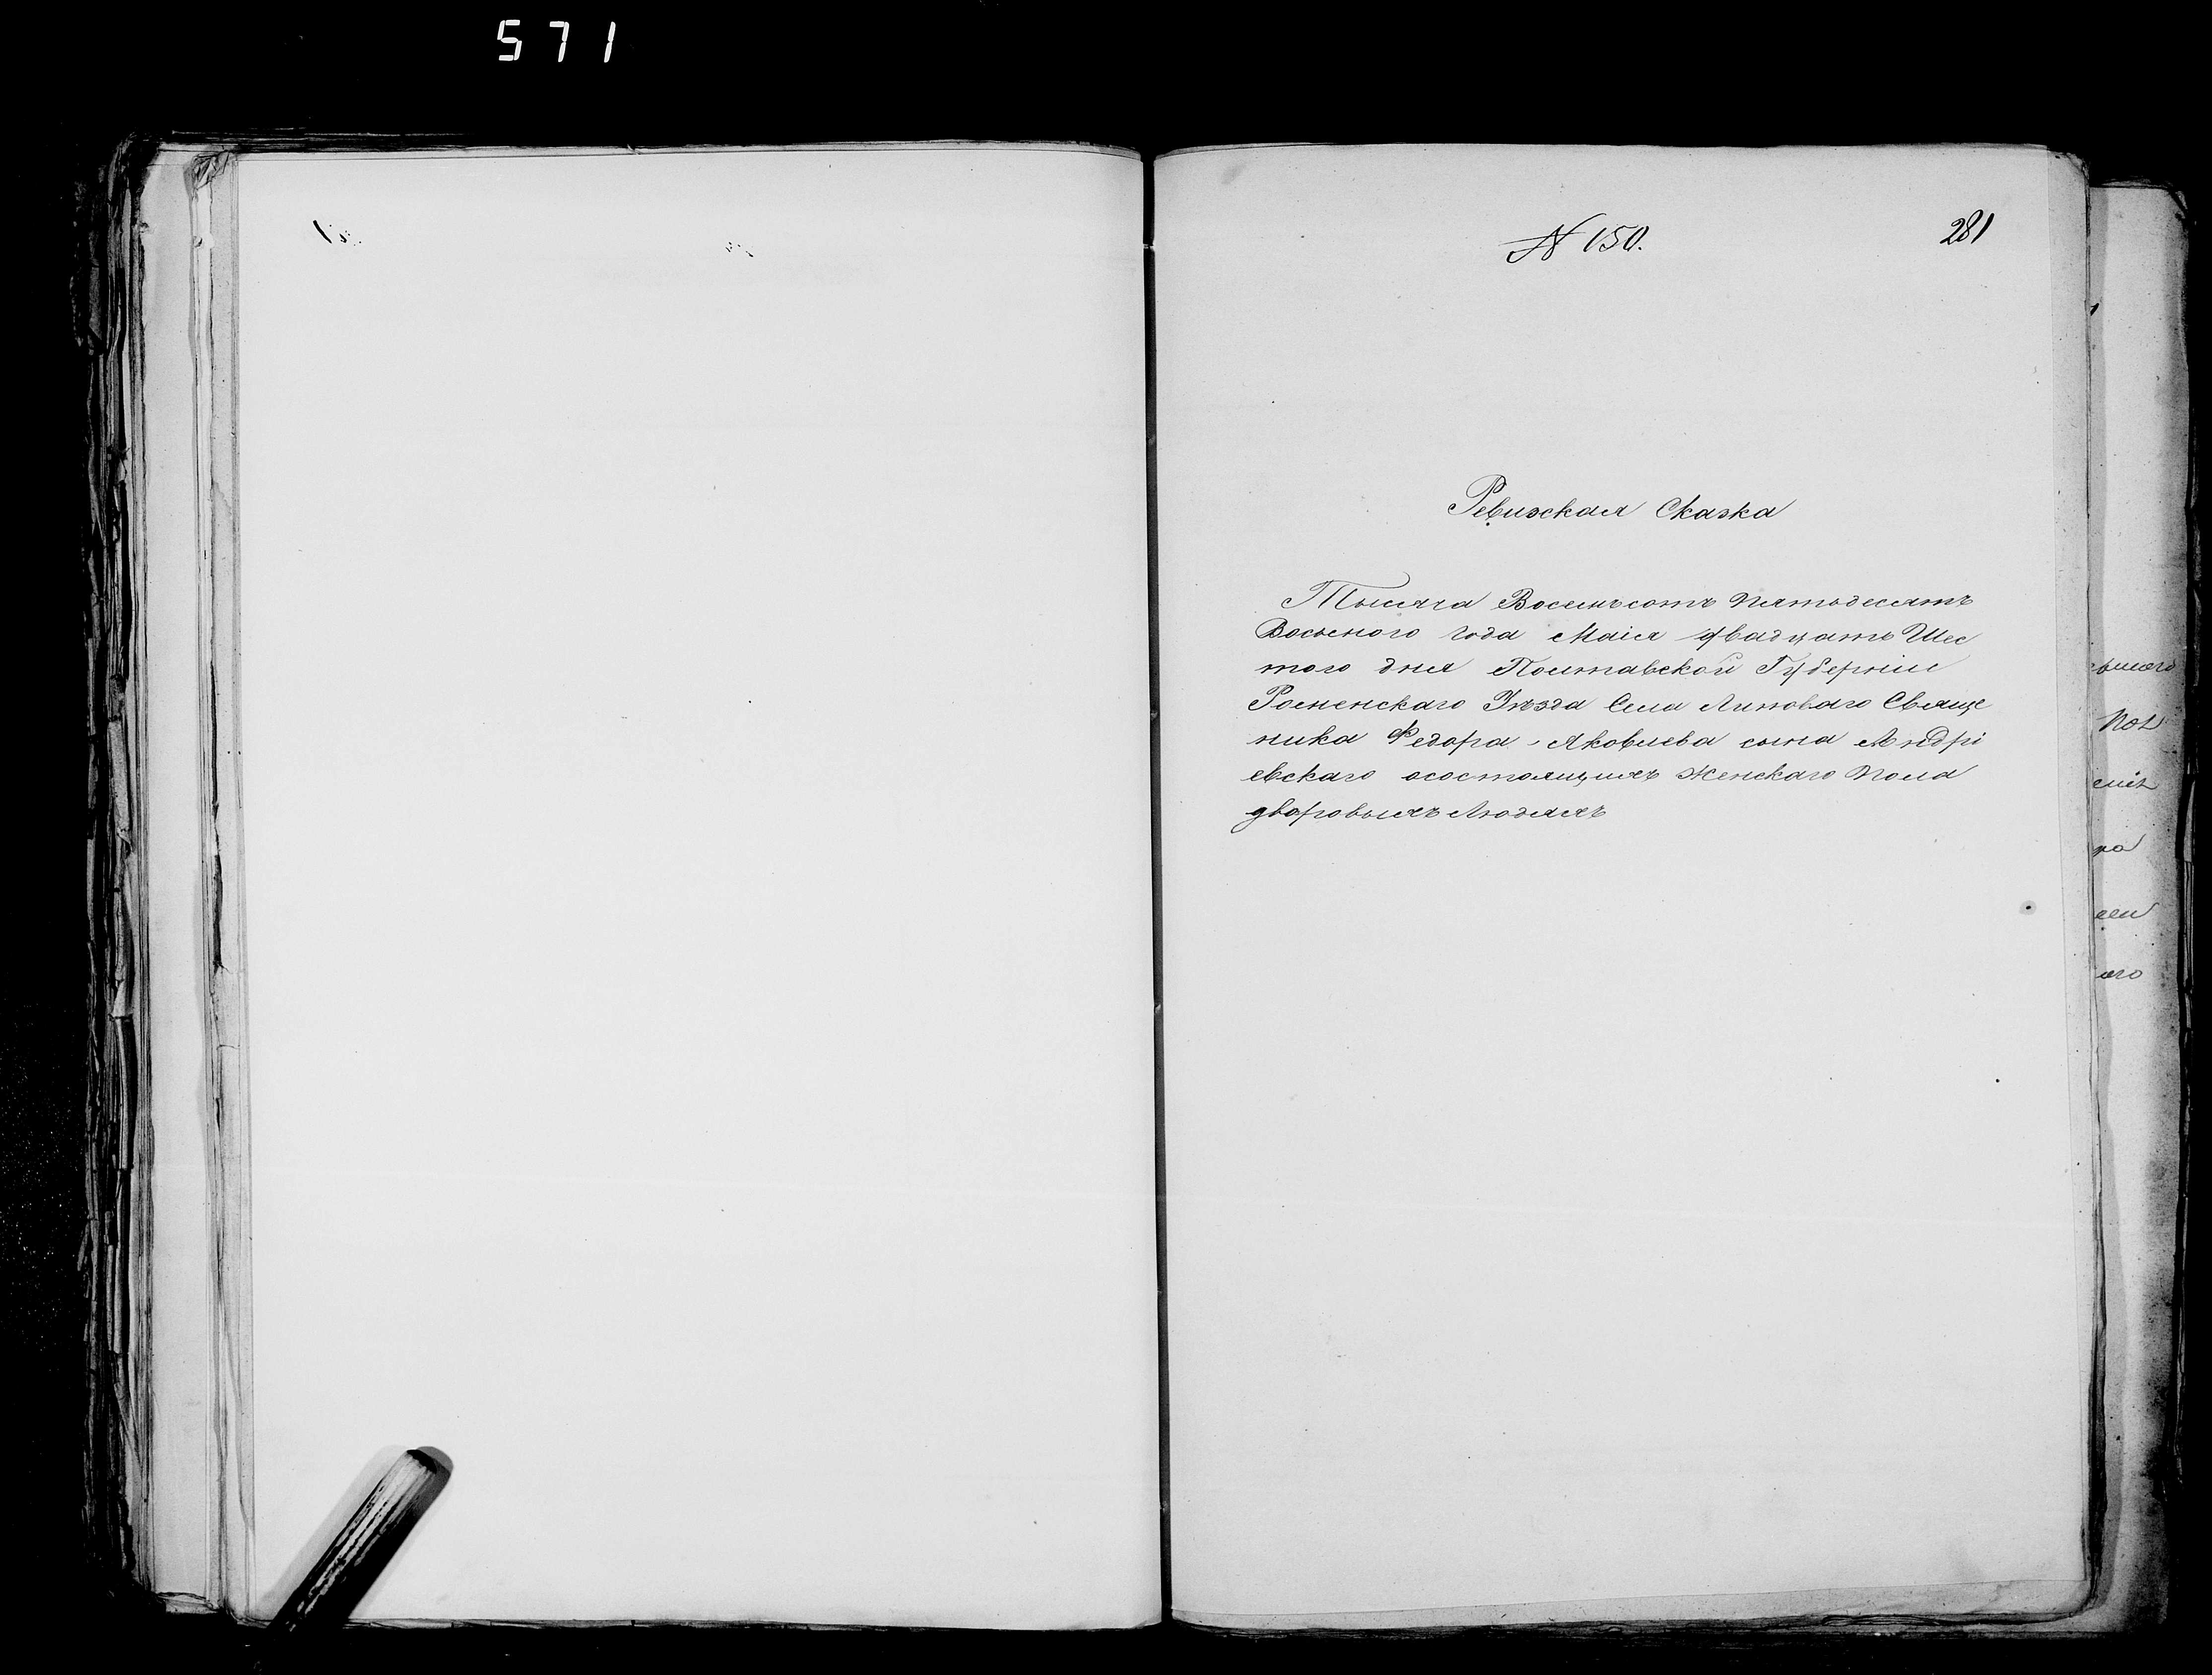 571
N 150.
281
Ревизская Сказка
Тысяча Восемьсотъ Пятьдесятъ
Восьмого Года Маія двадцать Шес
того дня Полтавской Губерніи
Роменскаго Уѣзда Села Липоваго Свяще
ника Федора Яковлева сына Андрі
евскаго осостоящихъ Женскаго Пола
дворовыхъ Людяхъ